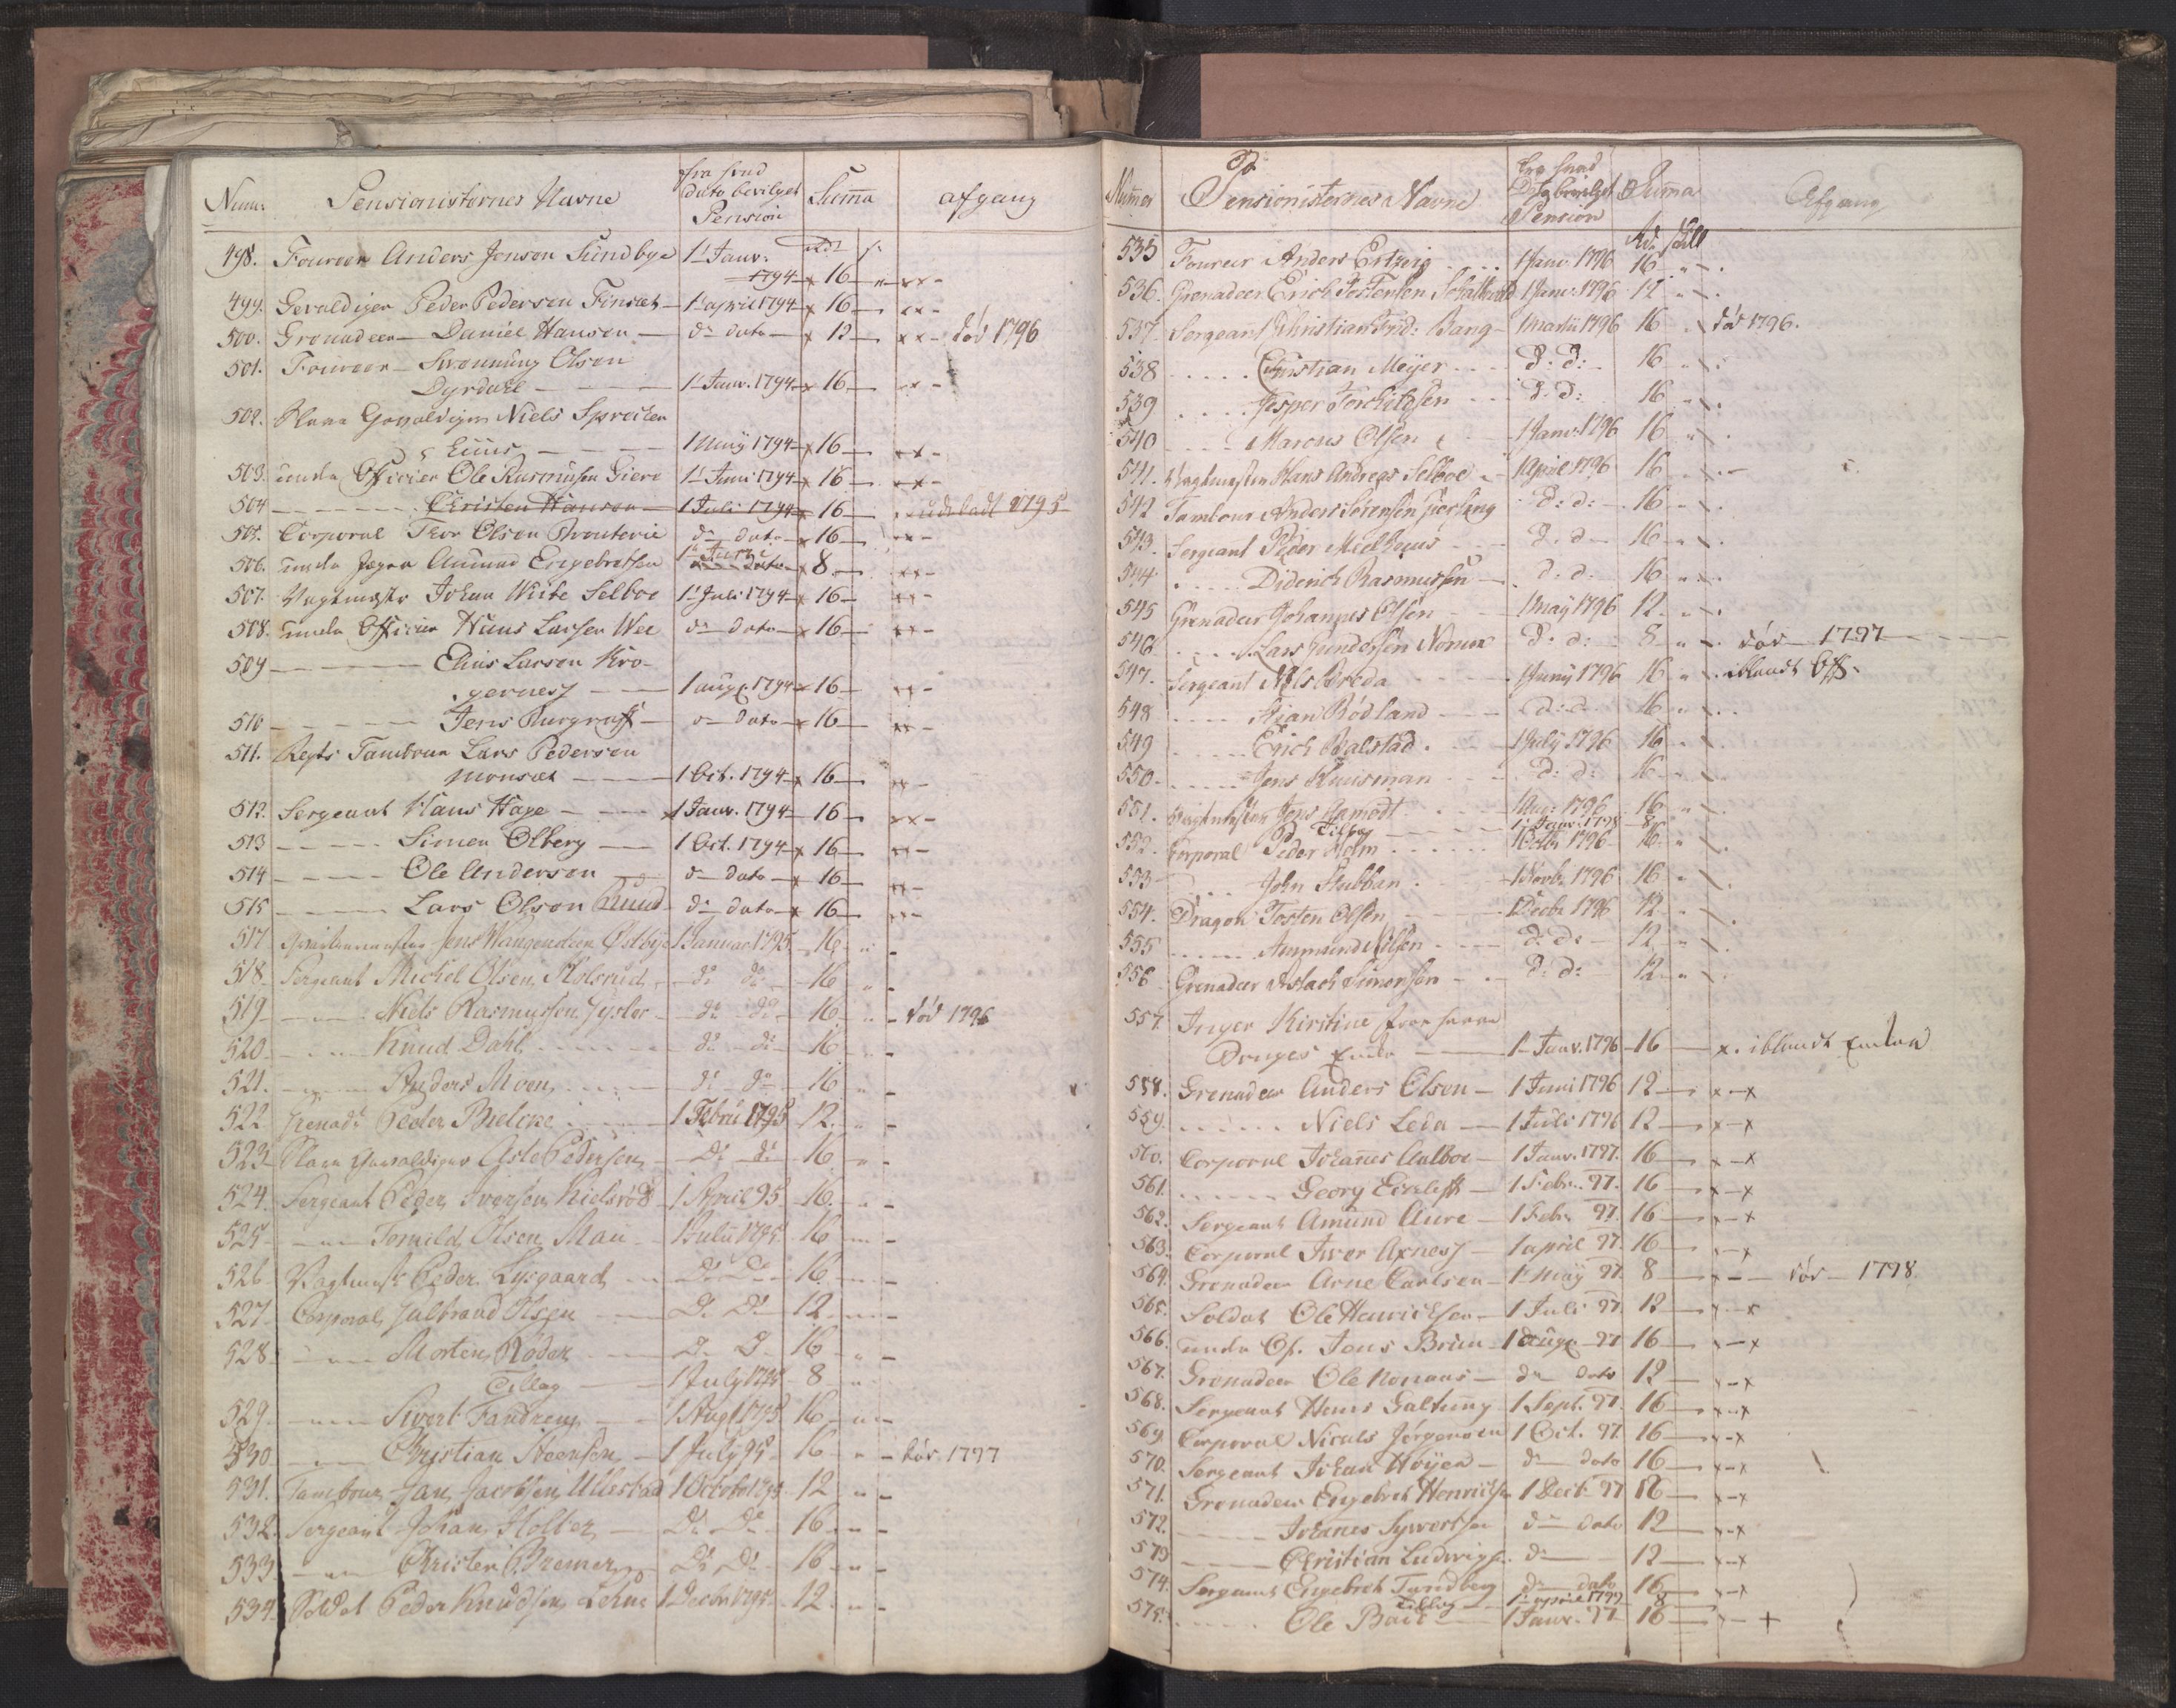 Num: Pensionisternes Navne fra hvad dato bevilget Pension Summa afgang
498. Foureer Anders Jonson Sundbye 1t Janv:
1794 16
499. Gevaldiger Peder Pedersen Finset 1t april 1794 16
500. Grenadeer Daniel Hansen d- dato 12 død 1796
501. Foureer Olsen
Dyrdahl 1t Janv. 1794 16
502. Gevaldiger Niels
1 Maij 1794 16
503. under Officier Ole Rasmusen 1t Juni 1794 16
504 Christen Hanson 1 Juli 1794 16 udsladt 1795
505. Corporal Thor Olsen d- dato 16
506. Jæger Amund Engebretsen 8
507. Vagtmestr Johan Selboe 1t Juli 1794 16
508. under Officier Hans Larsen Wee d- dato 16
509 Elius Larsen Kro-
gernes 1 aug. 1794 16
510 Jens d- dato 16
511. Regts Tambour Lars Pedersen
Monset 1 Oct. 1794 16
512. Sergeant Hans Hage 1 Janv. 1794 16
513 Simen Olberg 1 Oct. 1794 16
514 Ole Anderson d- dato 16
515 Lars Olson Ruud d- dato 16
517 Jens Wangensteen Østbye 1 Januar 1795 16
518. Sergeant Michel Olsen Kolsrud do do 16
519 Niels Rasmussen do do 16 død 1796
520 Knud Dahl do do 16
521. Anders Moen do do 16
522 Grenadr Peder 1 Febru 1795 12
523 Gevaldiger Asle Pedersen Do do 16
524. Sergeant Peder Iversen 1 April 95 16
525 Olsen Mau 1 Julii 1795 16
526 Vagtmestr Peder Lysgaard Do Do 16
527 Corporal Halvraad Olsen Do Do 12
528 Morten Do Do 16
Tillag 1 July 1795 8
529 Sivert 1 Augt 1795 16
530 Christian Steensen 1 July 95 16 død 1797
531. Tambour Jan Jacobsen Ullestad 1 Octob 1795 12
532. Sergeant Johan Holter Do Do 16
533 Christen Bremer Do Do 16
534 Soldat Peder Knudsen 1 Decbr 1795 12
Numer Pensionisternes Navne fra hvad Dato bevilget Pension Summa Afgang
Rd. skill
535 Foureer Anders 1 Janv 1796 16
536. Grenadeer Erich Tostensen 1 Janv: 1796 12
537. Sergeant Christian Frid: Bang 1 Martii 1796 16 død 1796.
538 Christian Meyer D: D: 16
539 Jesper Torchildsen D: D: 16
540 Marcus Olsen 1 Janv: 1796 16
541. Vagtmester Hans Andreas Selboe 1 April 1796 16
542 Tambour Anders Sørensen D: d: 16
543. Sergeant Peder D. d 16
544 Diderich Rasmussen D. d. 16
545 Grenadeer Johannes Olsen 1 May 1796 12
546 Lars Gundersen D. d: 8 død 1797
547. Sergeant Nils Breda 1 Juny 1796 16 iblandt Off.
548 Rødland D: d: 16
549 Erich Balstad 1 July 1796 16
550 Jens D: d: 16
551. Vagtmester Jens Aamodt 1 Aug: 1796 16
Tillag 1t Janv: 1798 8
552. Corporal Peder Holm 1 Octbr 1796 16
553 John Stubban 1 Novbr 1796 16
554. Dragon Tosten Olsen 1 Decbr 1796 12
555 Aamund Nilsen D: D: 12
556 Grenadeer Aslach Simensen D: d: 12
557. Inger Kirstine
Enke 1 Janv. 1796 16 iblandt Enker
558. Grenadeer Anders Olsen 1 Juni 1796 12
559. Niels Leda 1 Juli 1796 12
560. Corporal Johanes Aalboe 1 Janv. 1797. 16
561. Georg 1 Febr. 97. 16
562. Sergeant Amund Aure 1 Febr 97 16
563. Corporal Iver Axnes 1 april 97. 16
564. Grenadeer Arne Carlsen 1t Maÿ 97 8 død 1798.
565. Soldat Ole Henrichsen 1 Juli 97. 12
566. under Of. Jens Brun 1 Aug. 97 16
567. Grenadeer Ole d- dato 12
568. Sergeant Hans Galtung 1 Sept. 97. 16
569 Corporal Nicols Jørgensen 1 Oct. 97. 16
570. Sergeant Johan Høyer d- dato 16
571. Grenadeer Engebret Henrichs 1 Decb 97 16
572. Johanes Syvertsen d- dato 12
573 Christian Ludvigs. d- 12
574. Sergeant Engebret Tundberg d- dato 16
Tillag 1t april 1799 8
575. Ole 1 Janv. 97 16